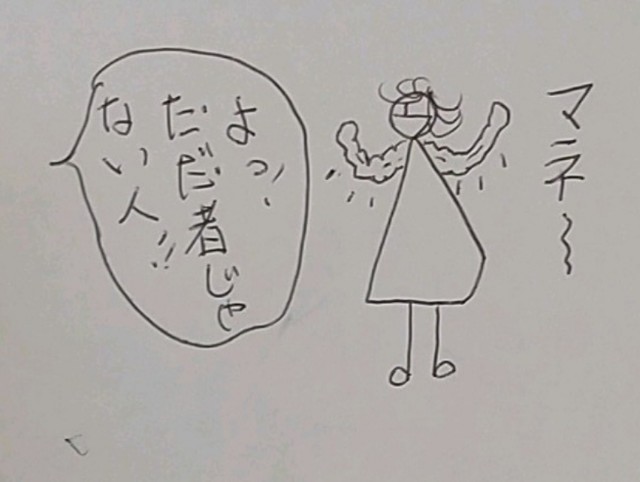 マネ〜
よっ、
だだ者じゃ
ない人!!